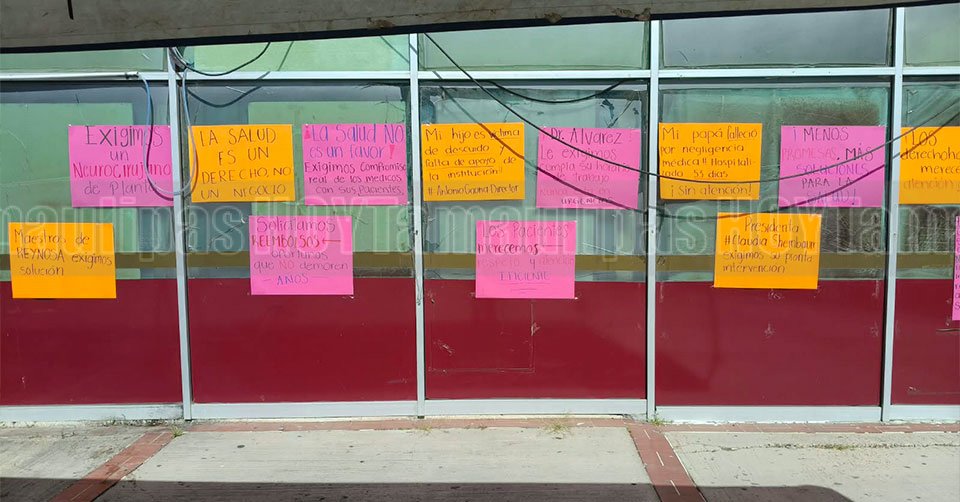 Exigimos
un
Neurocirujano
de planta
LA SALUD
ES UN
DERECHO, NO
UN NEGOCIO
¡La Salud NO
es un favor!
Exigimos compromiso
real de los medicos
con sus Pacientes.
Mi hijo es víctima
de descuido y
falta de apoyo de
la institución!
#Antonio Gaona Director
Dr. Alvarez
Le exigimos
cumpla su horario
de trabajo
Mi papá falleció
por negligencia
médica #Hospitali-
zado 55 días
¡Sin atención!
¡MENOS
PROMESAS, MÁS
SOLUCIONES
PARA LA
SALUD!
Los
derechohab
merece
atención
Maestros de
REYNOSA exigimos
solución
Solicitamos
REEMBOLSOS
oportunos
que NO demoren
AÑOS
Los Pacientes
merecemos
respeto y atención
EFICIENTE
Presidenta
#Claudia Sheinbaum
exigimos su pronta
intervención
Tamaulipas HOY Tamaulipas HOY Tamaulipas HOY